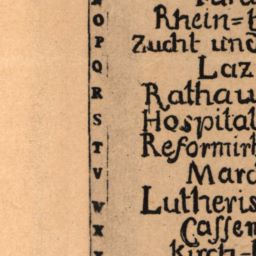 O Rhein=
P Zucht und
Q Laz
R Rathau
S Hospital
T Reformir
V Mar
W Lutheris
X Cassern
Kirch=